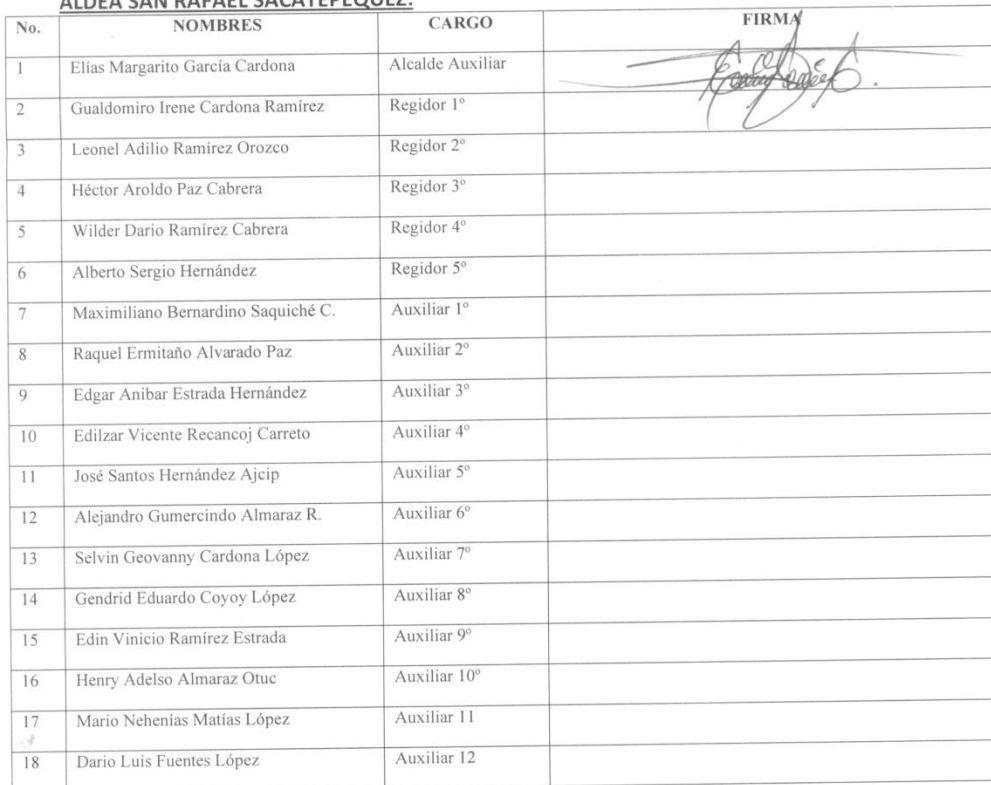 ALDEA SAN RAFAEL SACATEPEQUEZ.
No. NOMBRES CARGO FIRMA
1 Elías Margarito García Cardona Alcalde Auxiliar
2 Gualdomiro Irene Cardona Ramírez Regidor 1º
3 Leonel Adilio Ramírez Orozco Regidor 2º
4 Héctor Aroldo Paz Cabrera Regidor 3º
5 Wilder Dario Ramírez Cabrera Regidor 4º
6 Alberto Sergio Hernández Regidor 5º
7 Maximiliano Bernardino Saquiché C. Auxiliar 1º
8 Raquel Ermitaño Alvarado Paz Auxiliar 2º
9 Edgar Anibar Estrada Hernández Auxiliar 3º
10 Edilzar Vicente Recancoj Carreto Auxiliar 4º
11 José Santos Hernández Ajcip Auxiliar 5º
12 Alejandro Gumercindo Almaraz R. Auxiliar 6º
13 Selvin Geovanny Cardona López Auxiliar 7º
14 Gendrid Eduardo Coyoy López Auxiliar 8º
15 Edin Vinicio Ramírez Estrada Auxiliar 9º
16 Henry Adelso Almaraz Otuc Auxiliar 10º
17 Mario Nehenías Matías López Auxiliar 11
18 Dario Luis Fuentes López Auxiliar 12